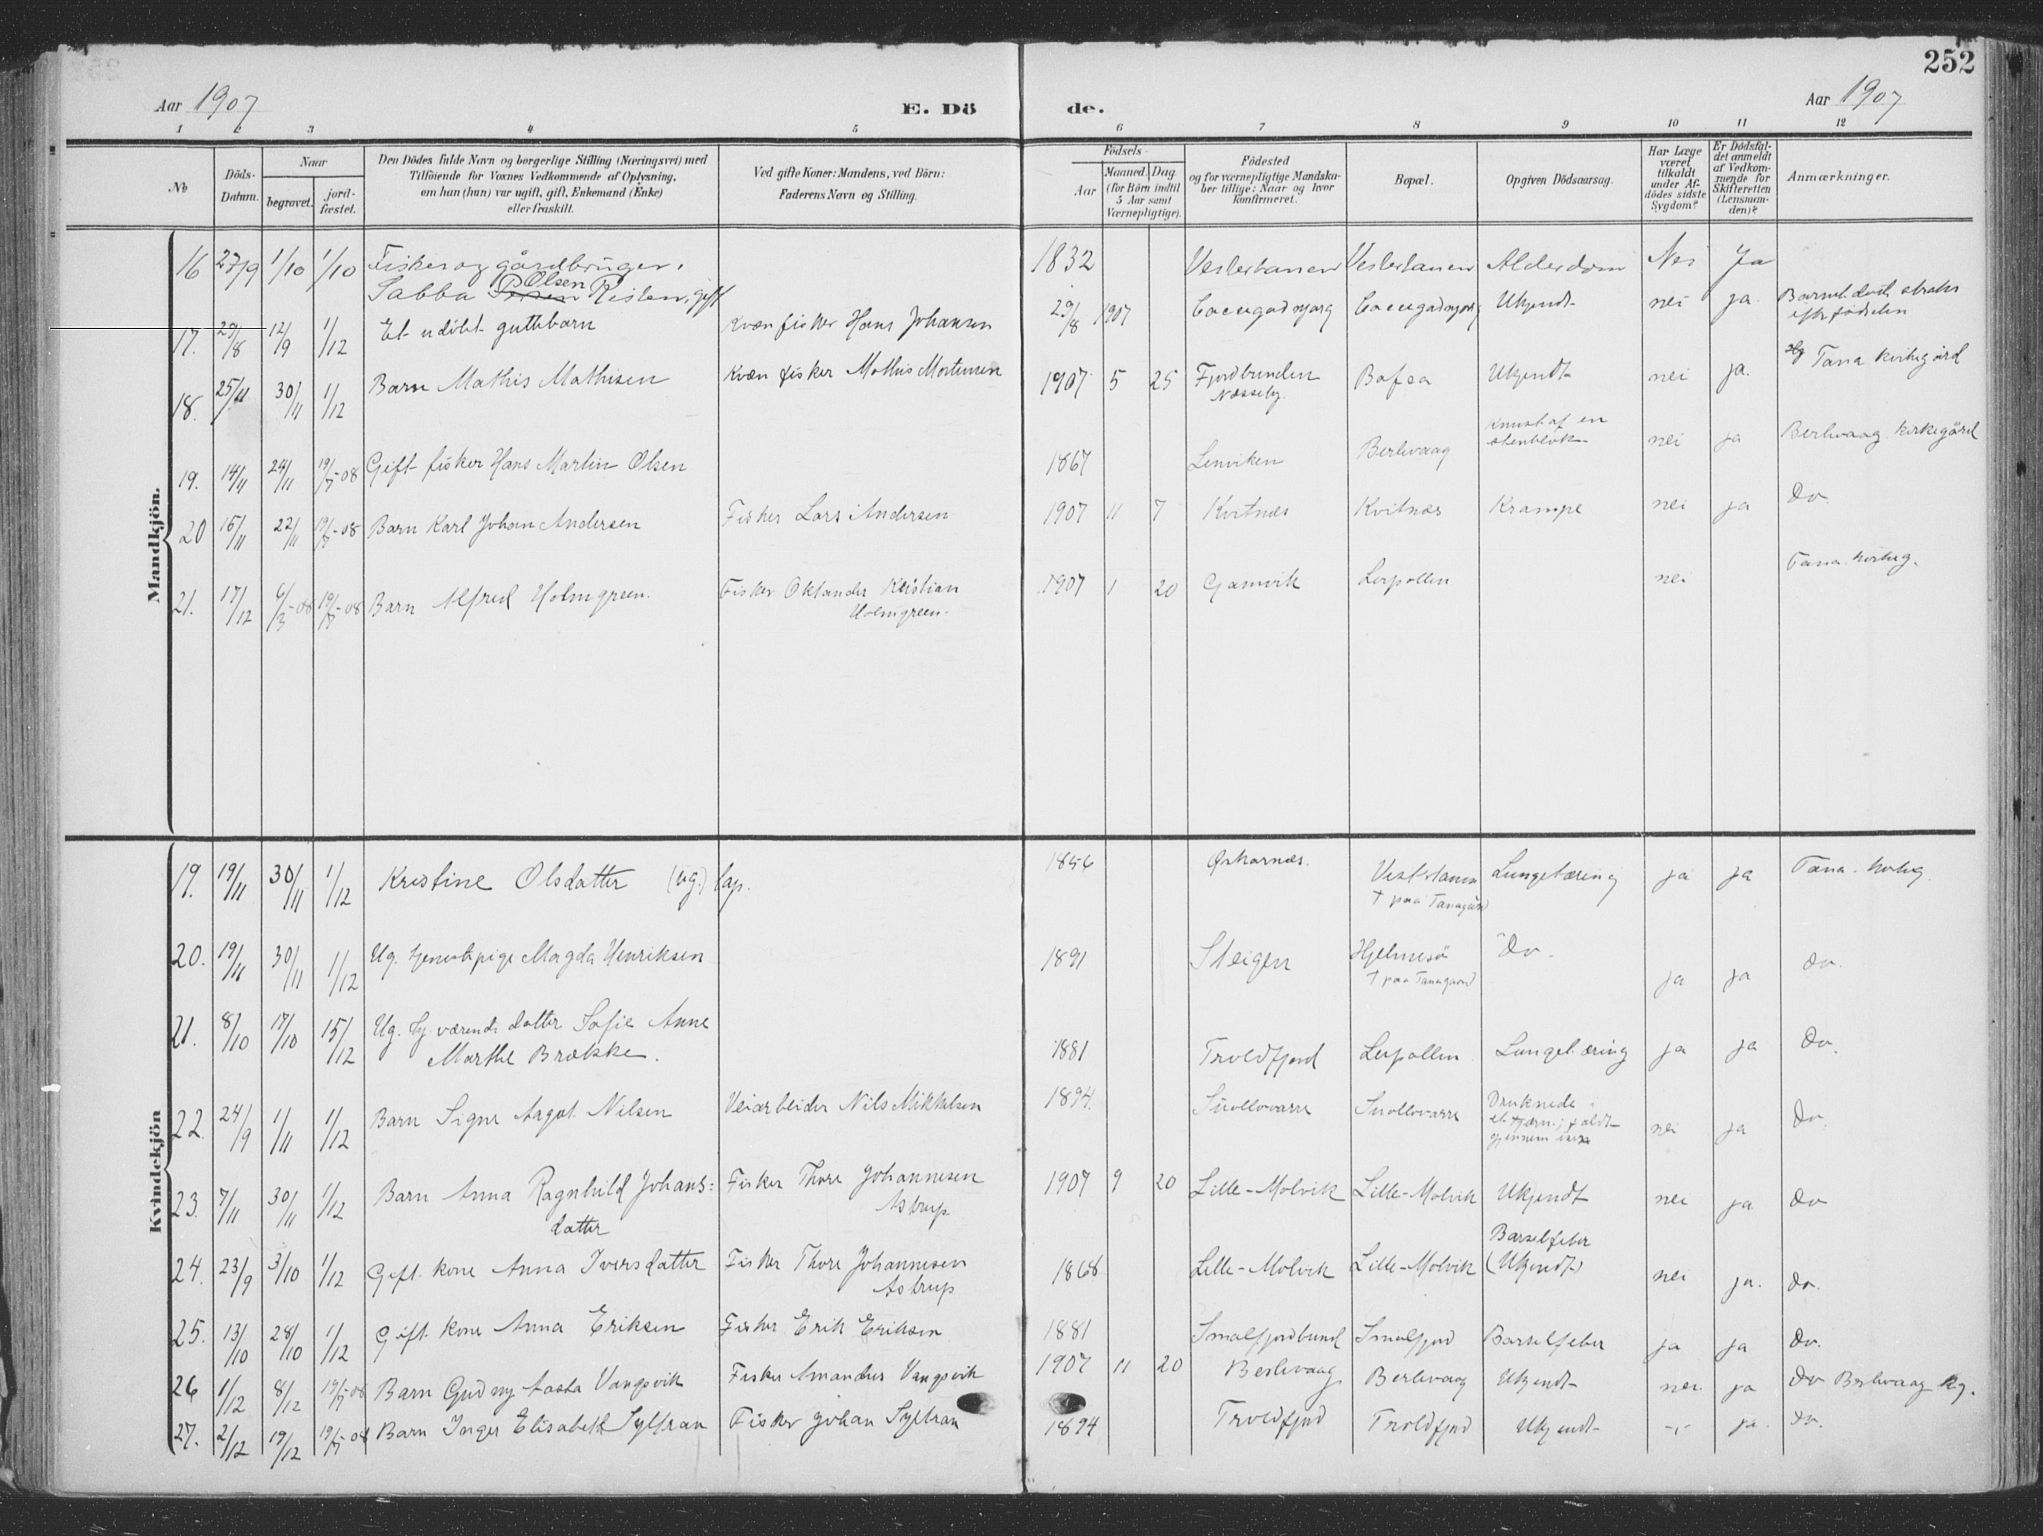 252
Aar 1907
E. Dö de.
Aar 1907
1 2 3 4 5 6 7 8 9 10 11 12
No
Döds-
Datum.
Naar
begravet.
jord-
fæstet.
Den Dödes fulde Navn og borgerlige Stilling (Næringsvei) med
Tilföiende for Voxnes Vedkommende af Oplysning,
om han (hun) var ugift, gift, Enkemand (Enke)
eller fraskilt.
Ved gifte Koner: Mandens, ved Börn:
Faderens Navn og Stilling.
Födsels-
Aar
Maaned. Dag
(for Börn indtil
5 Aar samt
Værnepligtige).
Födested
og for værnepligtige Mandska-
ber tillige: Naar og hvor
konfirmeret.
Bopæl.
Opgiven Dödsaarsag.
Har Læge
været
tilkaldt
under Af-
dödes sidste
Sygdom?
Er Dödsfal-
det anmeldt
af Vedkom-
mende for
Skifteretten
(Lensman-
den)?
Anmærkninger.
Mandkjön.
16 27/9 1/10 1/10 Fisker og gårdbruger, 1832 Vestertanen Vestertanen Alderdom Nei Ja
Olsen
Sabba Risten, gift
17. 29/8 12/9 1/12 Et udöbt guttebarn Kvæn fisker Hans Johansen 29/8 1907 Ukjendt nei ja Barnet döde straks
efter födselen
18. 25/11 30/11 1/12 Barn Mathis Mathisen Kvæn fisker Mathis Mortensen 1907 5 25 Fjordbunden Bafea Ukjendt nei ja. Tana kirkegård
Næsseby.
19. 14/11 24/11 19/7-08 Gift fisker Hans Martin Olsen 1867 Lenviken Berlevaag Knust af en
stenblok nei ja Berlevaag kirkegård
20 15/11 22/11 19/7-08 Barn Karl Johan Andersen Fisker Lars Andersen 1907 11 7 Kvitnæs Kvitnæs Krampe nei ja Do
21. 17/12 6/3-08 19/7-08 Barn Alfred Holmgreen. Fisker Oktander Kristian 1907 1 20 Gamvik Leipollen nei Tana kirkeg.
Holmgreen.
Kvindekjön
19. 19/11 30/11 1/12 Kristine Olsdatter (ug.) lap. 1856 Vestertanen Lungetæring ja ja Tana
† paa Tanagård
20. 19/11 30/11 1/12 Ug. tjenestepige Magda Henriksen 1891 Steigen Hjelmesö Do. ja ja do.
† paa Tanagaard
21. 8/10 17/10 15/12 Ug. hj. værende datter Sofie Anne
Marthe Brække. 1881 Troldfjord Leipollen Lungetæring ja ja Do.
22. 24/9 1/11 1/12 Barn Signe Aagot Nilsen Veiarbeider Nils Mikkelsen 1894. Suollovarre Suollovarre Druknede i
et tjærn; faldt
gjennem isen nei ja Do.
23. 7/11 30/11 1/12 Barn Anna Ragnhild Johans= Fisker Thore Johannesen 1907 9 20 Lille-Molvik Lille-Molvik Ukjendt nei ja do
datter Astrup
24. 23/9 3/10 1/12 Gift kone Anna Iversdatter Fisker Thore Johannesen 1868 Lille-Molvik Lille-Molvik Barselfeber
(Ukjendt) nei ja. do.
Astrup
25. 13/10 28/10 1/12 Gift kone Anna Eriksen Fisker Erik Eriksen 1881 Smalfjordbund Smalfjord Barselfeber ja ja do.
26 1/12 8/12 19/7-08 Barn Gudny Aasta Vangsvik Fisker Amandus Vangsvik 1907 11 20 Berlevaag Berlevaag Ukjendt nei ja do Berlevaag kg.
27. 2/12 19/12 19/7-08 Barn Inger Elisabeth Syltran Fisker Johan Syltran 1894 Troldfjord Troldfjord Ukjendt -,- ja. do.